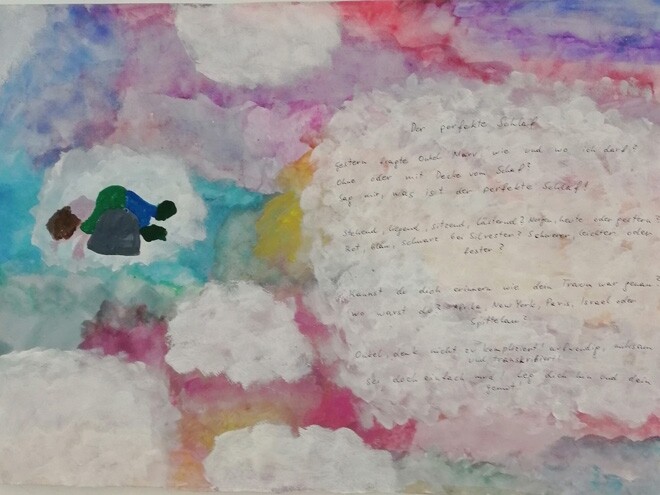 Der perfekte Schlaf
gestern fragte Onkel Marr wie und wo ich darf?
Ohne oder mit Decke vom Schaf?
Sag mir, was ist der perfekte Schlaf?
Stehend, liegend, sitzend, heute oder gestern?
Rot, blau, schwarz bei Silvester? Schwerer, leichter oder
fester?
Kannst du dich erinnern wie dein Traum war genau?
wo warst du? Afrika, New York, Paris, Israel oder
Spittelau?
Onkel, denk nicht zu kompliziert aufwendig,
und
Sei doch einfach leg dich hin und dein